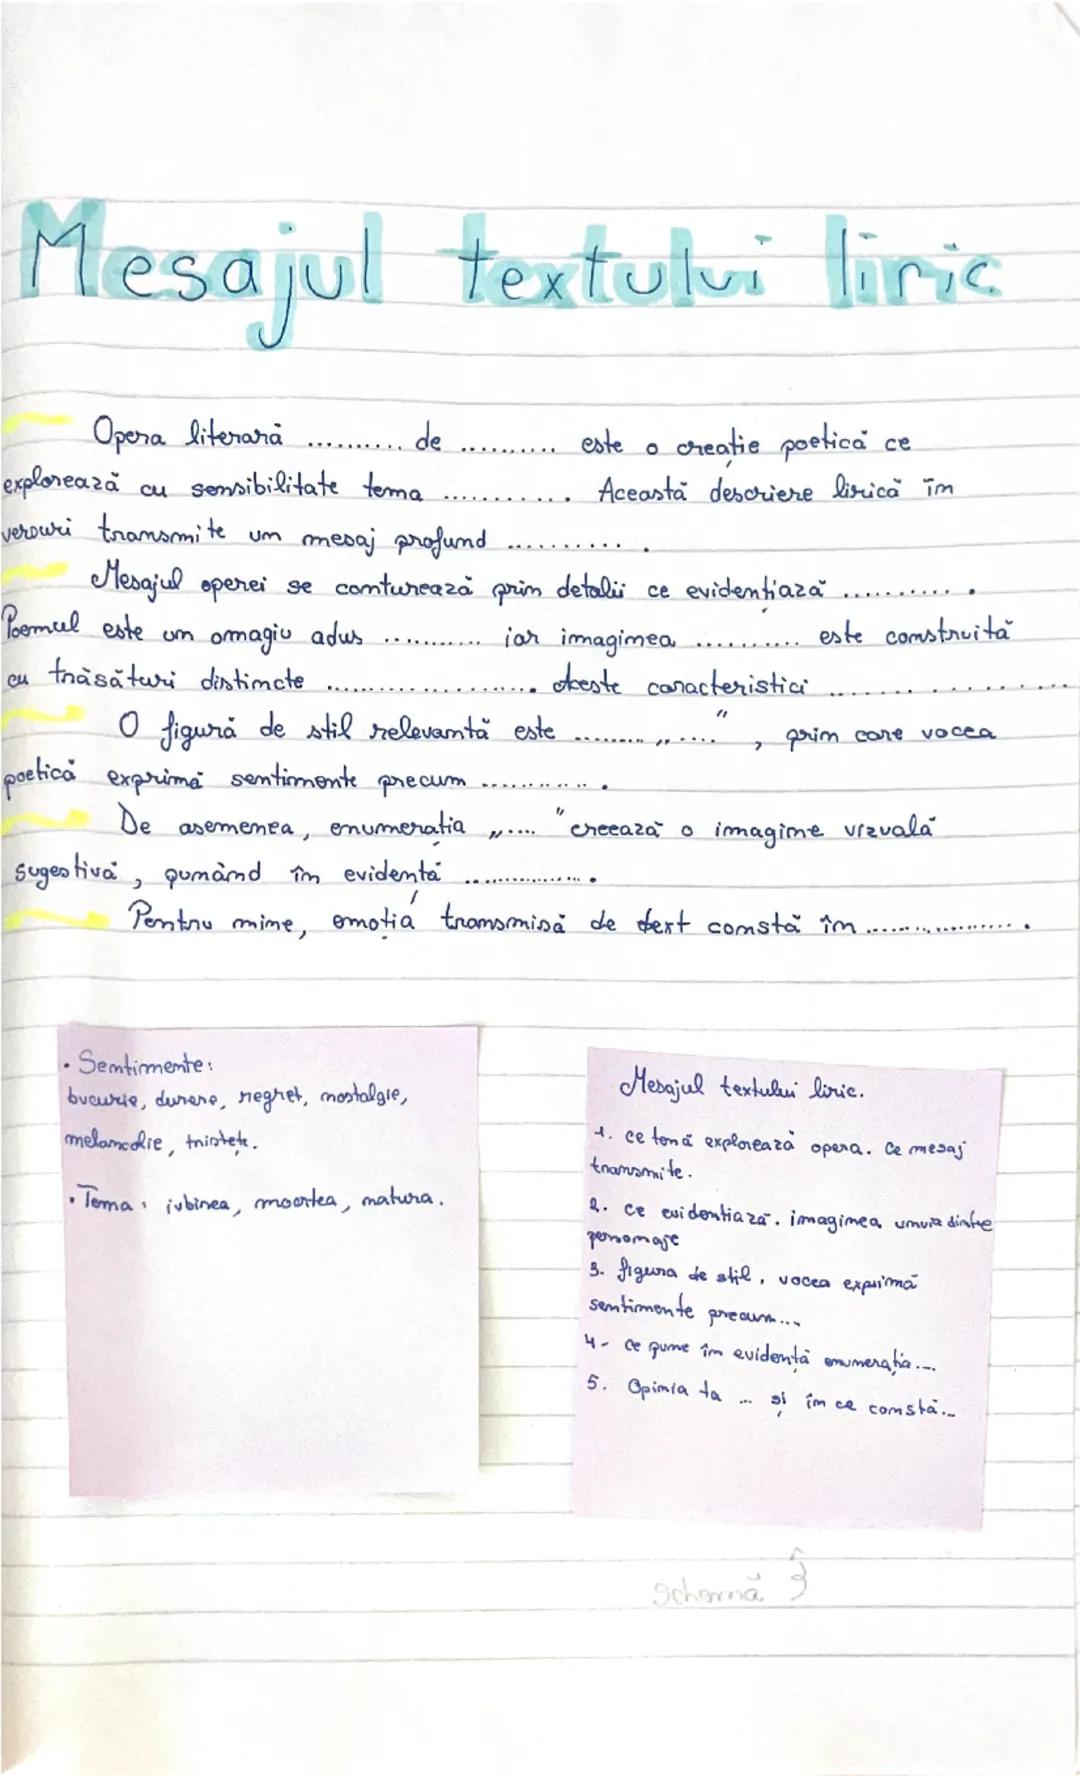 Mesajul textului liric
Opera literară .......... de .......... este o creație poetică ce
explorează cu sensibilitate tema ........... Această descriere lirică în
versuri transmite un mesaj profund .......... .
Mesajul operei se conturează prin detalii ce evidențiază .......... .
Poemul este un omagiu adus .......... iar imaginea .......... este construită
cu trăsături distincte .................... . Aceste caracteristici ....................
O figură de stil relevantă este ......... „.....", prin care vocea
poetică exprimă sentimente precum ............ .
De asemenea, enumerația „....." creează o imagine vizuală
sugestivă, punând în evidență ............... .
Pentru mine, emoția transmisă de text constă în .................. .
• Sentimente:
bucurie, durere, regret, nostalgie,
melancolie, tristețe.
• Tema: iubirea, moartea, natura.
Mesajul textului liric.
1. ce temă explorează opera. Ce mesaj
transmite.
2. ce evidențiază. imaginea unuia dintre
personaje
3. figura de stil, vocea exprimă
sentimente precum...
4- ce pune în evidență enumerația...
5. Opinia ta ... și în ce constă...
schemă